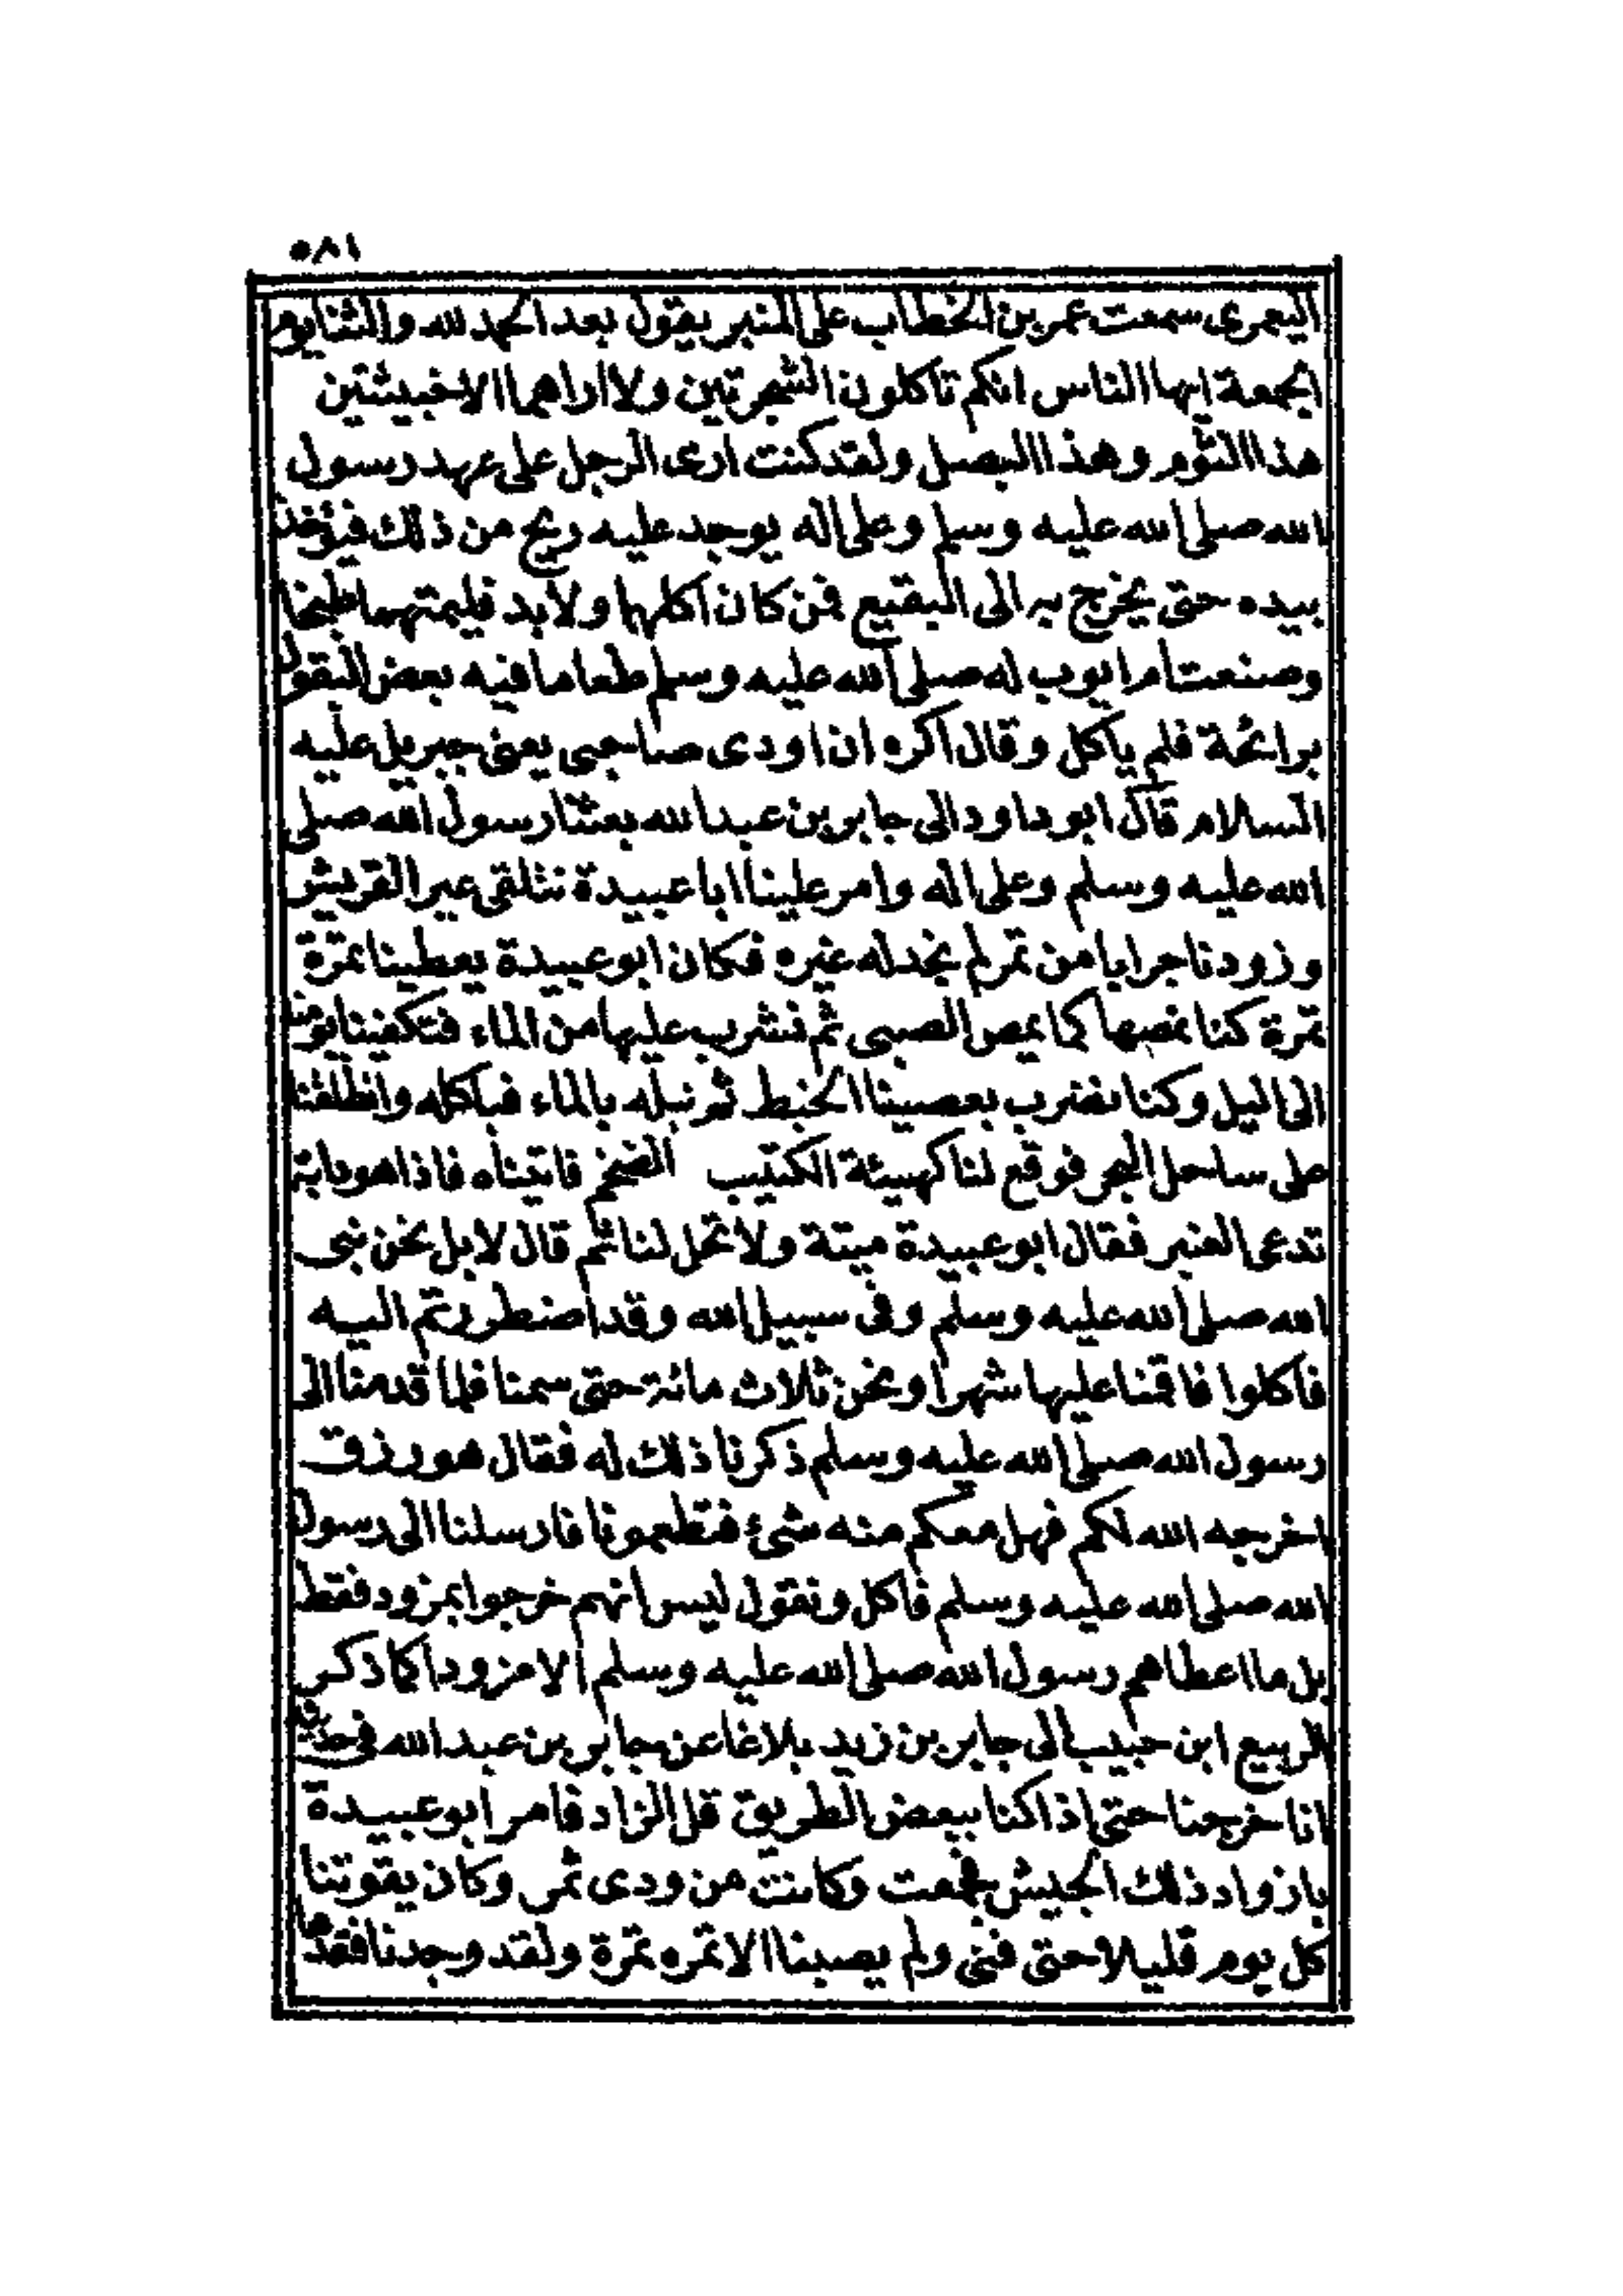 ٥٨١
اليعمرى سمعت عمر بن الخطاب على المنبر يقول بعد الحمد لله والثنا يوم
الجمعة ايها الناس انكم تاكلون الشجرتين ولا اراهما الا خبيثتين
هذا الثوم وهذا البصل ولقد كنت ارى الرجل على عهد رسول
الله صلى الله عليه وسلم وعلى اله يوجد عليه ريح من ذلك فيؤخذ
بيده حتى يخرج به الى البقيع فمن كان اكلهما ولابد فليمتهما طبخا
وصنعت ام ايوب له صلى الله عليه وسلم طعاما فيه بعض البقول
برائحة فلم ياكل وقال اكره ان اوذى صاحبى يعنى جبريل عليه
السلام قال ابو داود الى جابر بن عبد الله بعثنا رسول الله صلى
الله عليه وسلم وعلى اله وامر علينا ابا عبيدة نتلقى عير القريش
وزودنا جرابا من تمر لم نجد له غيره فكان ابو عبيدة يعطينا تمرة
تمرة كنا نمصها كما يمص الصبى ثم نشرب عليها من الماء فتكفينا يومنا
الى اليل وكنا نضرب بعصينا الخبط ثم نبله بالماء فناكله وانطلقنا
على ساحل البحر فوقع لنا كهيئة الكثيب الضخم فاتيناه فاذا هو دابة
تدعى العنبر فقال ابو عبيدة ميتة ولا تحل لنا ثم قال لا بل نحن نبى
الله صلى الله عليه وسلم وفى سبيل الله وقد اضطررتم اليه
فاكلوا فاقمنا عليها شهرا ونحن ثلاث مائة حتى سمنا فلما قدمنا الى
رسول الله صلى الله عليه وسلم ذكرنا ذلك له فقال هو رزق
اخرجه الله لكم فهل معكم منه شئ فتطعمونا فارسلنا الى رسول
الله صلى الله عليه وسلم فاكل ونقول ليس انهم خرجوا بمزود فقط
بل ما اعطاهم رسول الله صلى الله عليه وسلم الا مزودا كما ذكر
الربيع ابن حبيب الى جابر بن زيد بلاغا عن جابر بن عبد الله فى حديثه
انا خرجنا حتى اذا كنا ببعض الطريق قل الزاد فامر ابو عبيدة
بازواد ذلك الجيش فجمعت وكانت من ودى ثمر وكان يقوتنا
كل يوم قليلا حتى فنى ولم يصبنا الا تمره تمرة ولقد وجدنا فقدها